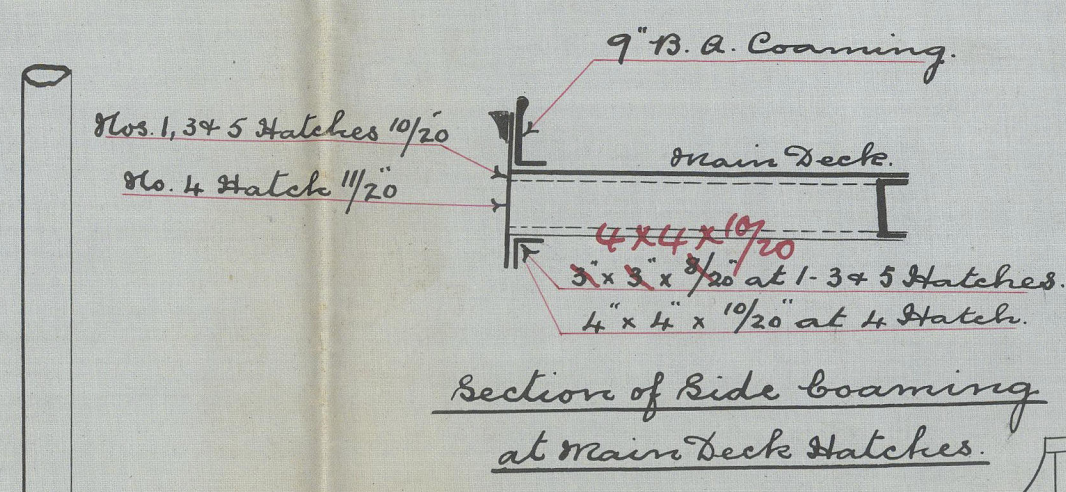 9" B. A. Coaming.
Nos. 1, 3 & 5 Hatches 10/20"
No. 4 Hatch 11/20"
Main Deck.
4 x 4 x 10/20
3" x 3" x 8/20" at 1 - 3 & 5 Hatches.
4" x 4" x 10/20" at 4 Hatch.
Section of Side Coaming
at Main Deck Hatches.